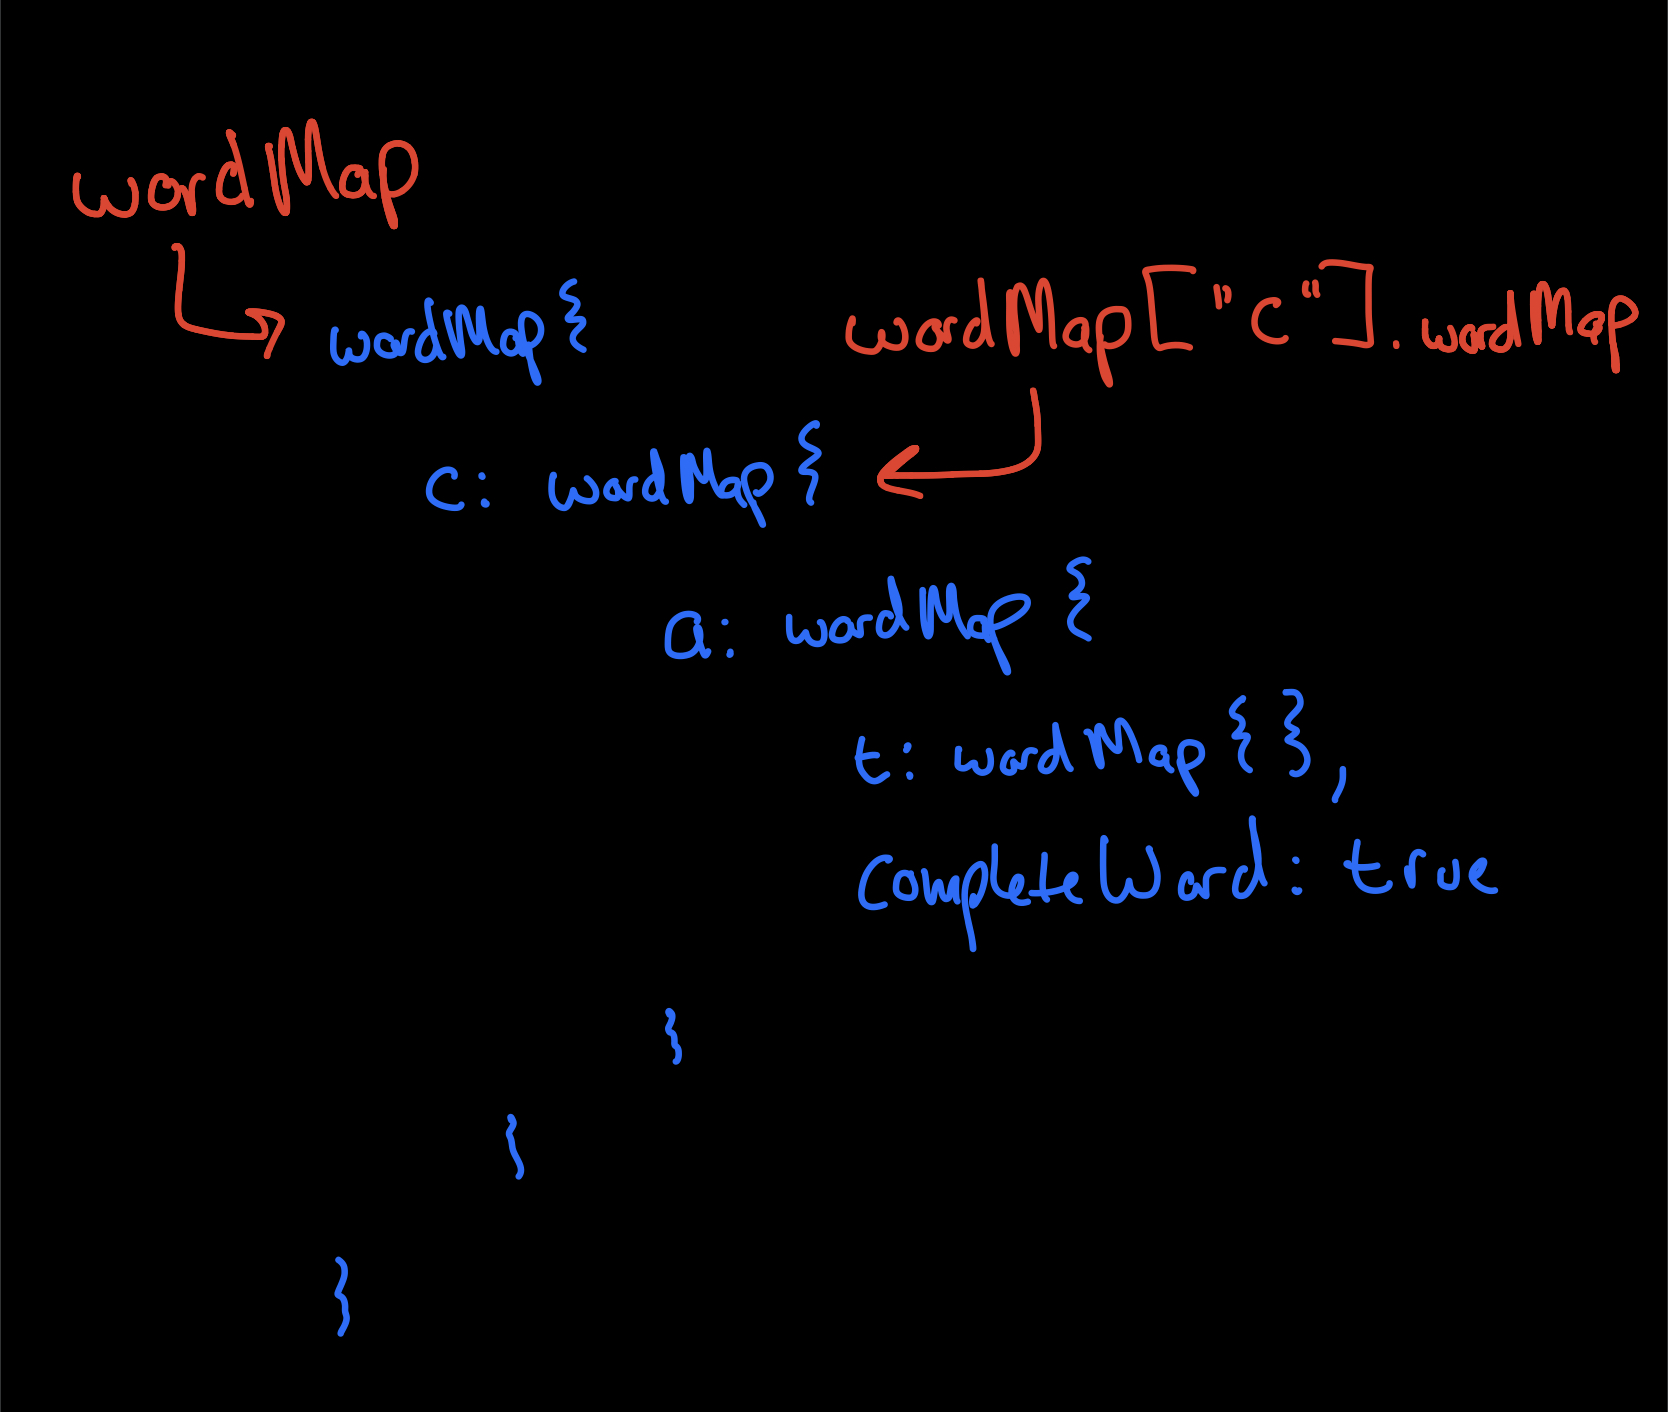 wordMap
wordMap{
wordMap["c"].wordMap
c: wordMap{
a: wordMap{
t: wordMap{},
completeWord: true
}
}
}